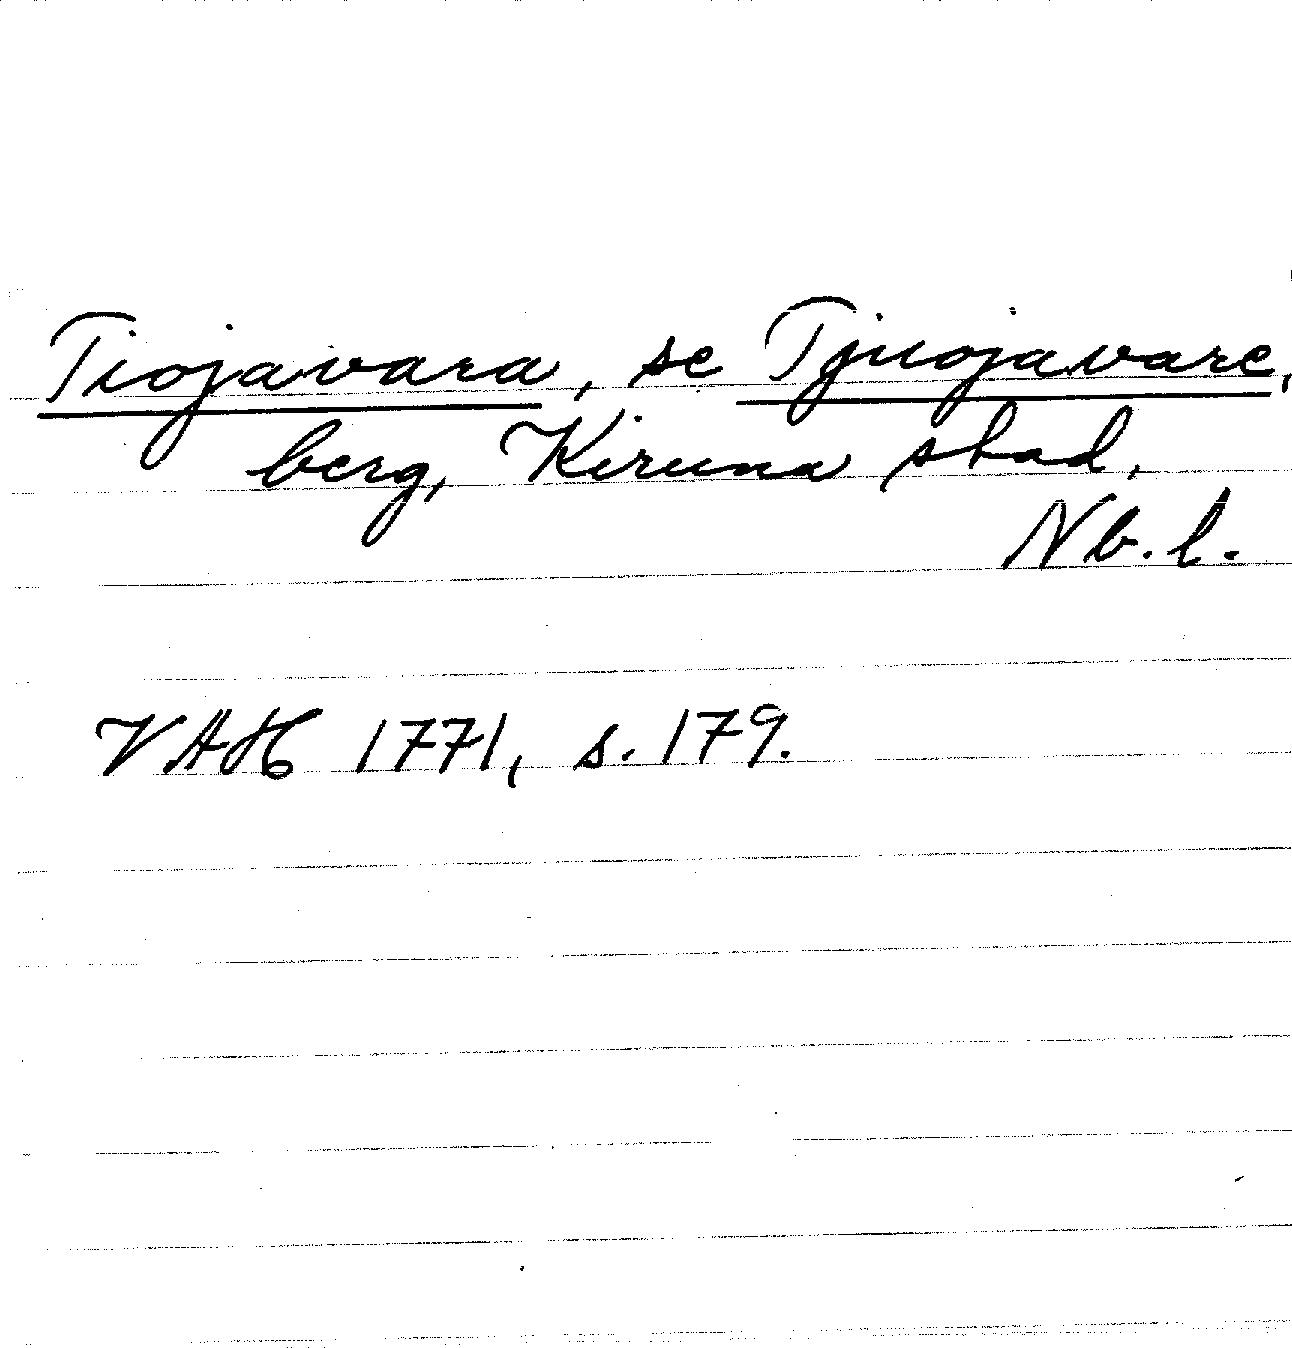 Tiojavara, se Tjuojavare,
berg, Kiruna stad,
Nb. l.
VAH 1771, s. 179.